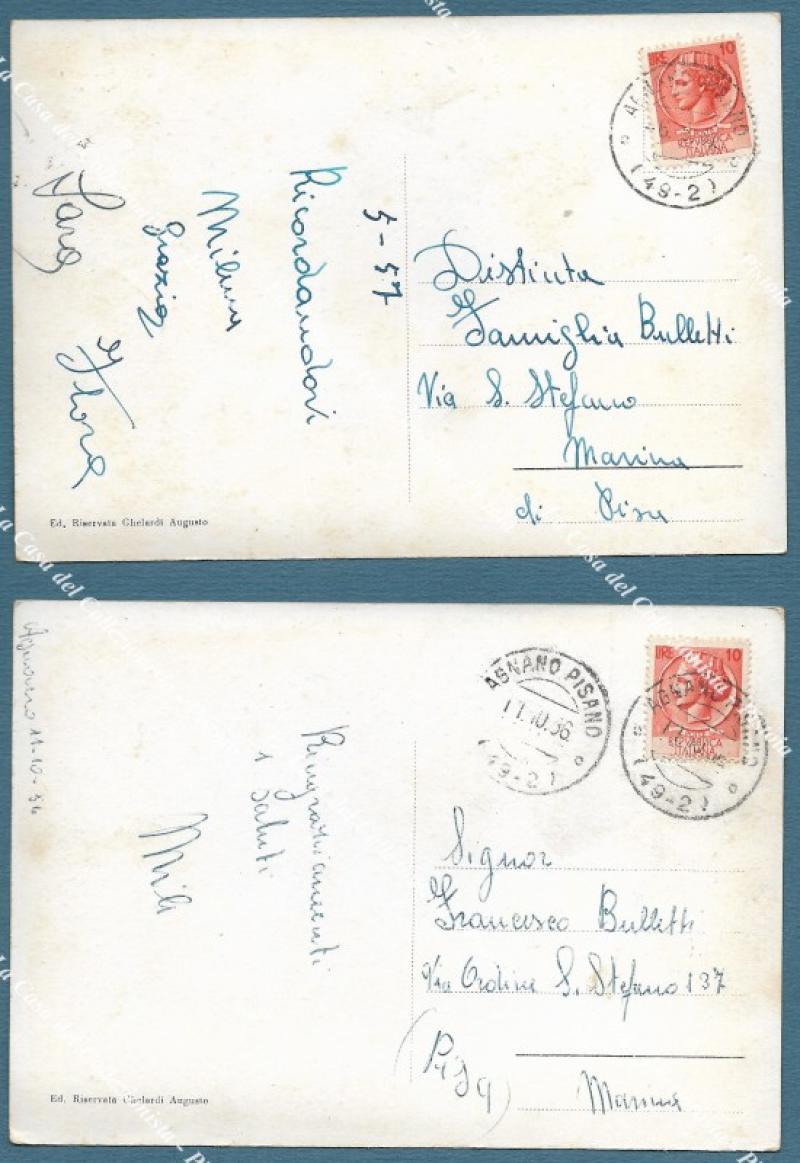 LIRE 10
REPVBBLICA
ITALIANA
(49-2)
5-57
Ricordandovi
Milena
Grazia
Sara
Flora
Distinta
Famiglia Bulletti
Via S. Stefano
Marina
di Pisa
Ed. Riservata Ghelardi Augusto
Agnano 11-10-56
AGNANO PISANO
11.10.56
(49-2)
LIRE 10
REPVBBLICA
ITALIANA
AGNANO PISANO
(49-2)
Ringraziamenti
e saluti
Signor
Francesco Bulletti
Via Ordine S. Stefano 137
(Pisa)
Marina
Ed. Riservata Ghelardi Augusto
La Casa del Collezionista - Pistoia